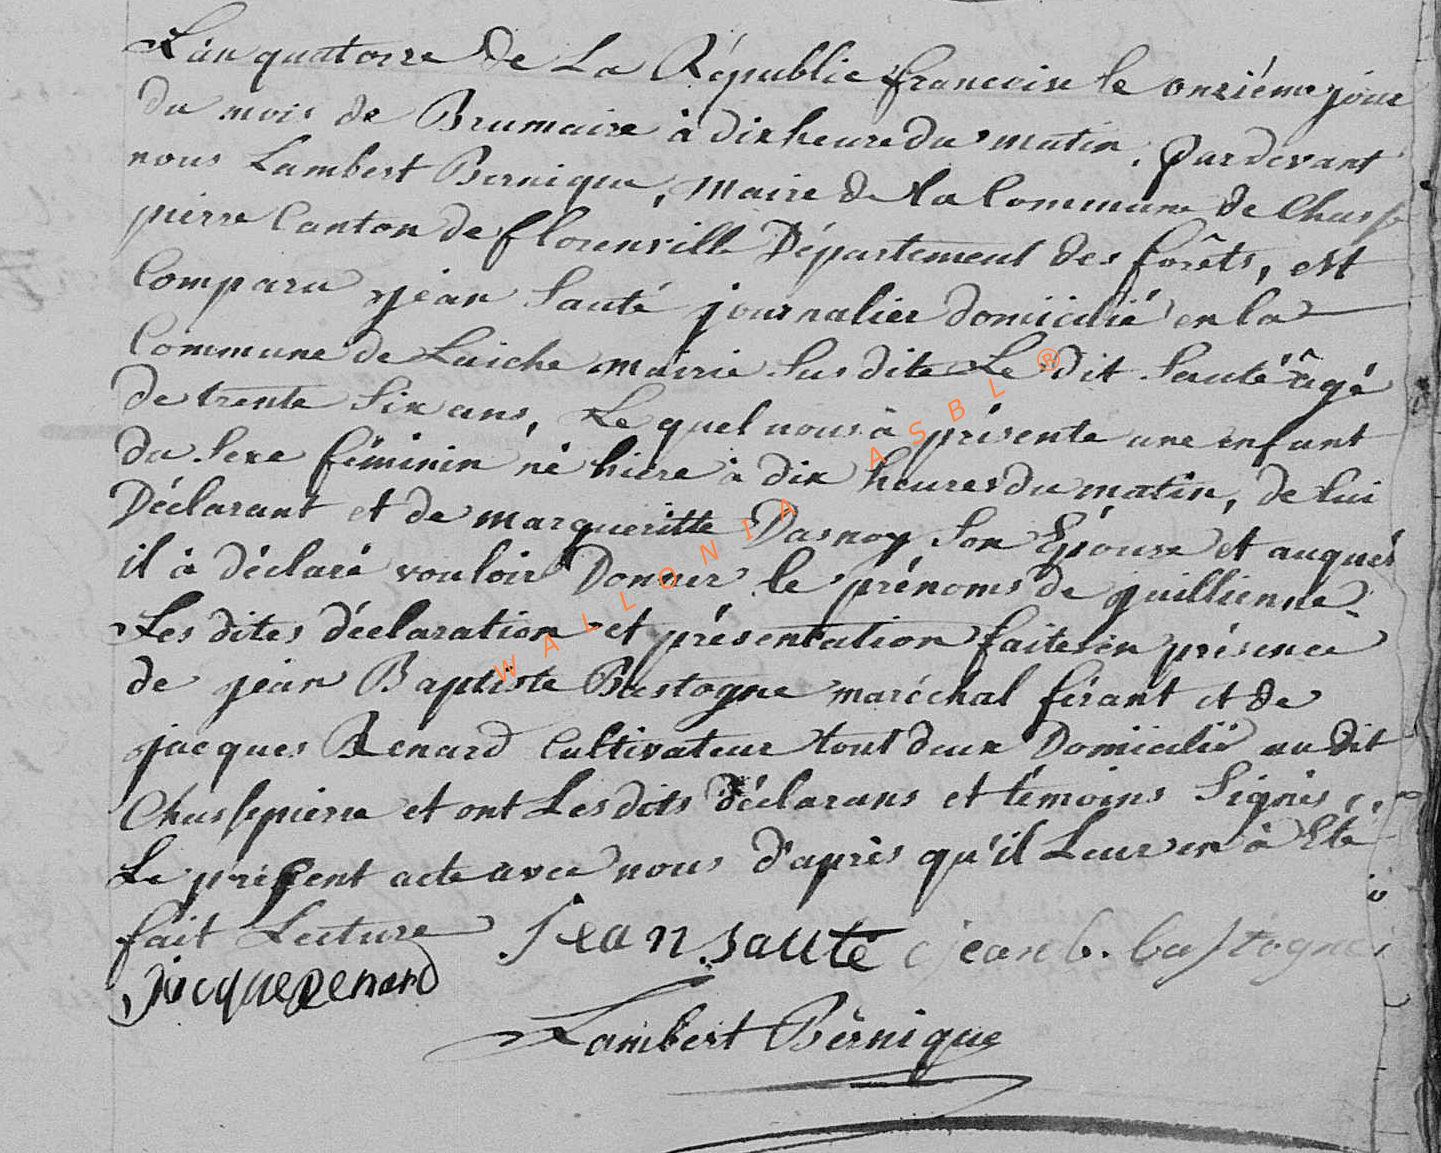 L'an quatorze de La République francoise le onziéme jour
du mois de Brumaire à dix heure du matin. Pardevant
nous Lambert Bernique, Maire de la Commune de Chasse
pierre Canton de florenville Département des forêts, est
Comparu jean Sauté journalier domicilié en la
Commune de Laiche mairie Susdite Le dit Sauté âgé
de trente Six ans, Le quel nous à présente une enfant
du Sexe féminin né hiere à dix heures du matin, de lui
Déclarant et de margueritte Dasnoy Son Epouse et auquel
il à déclaré vouloir Donner le prénoms de guillienne.
Les dites déclaration et présentation faites en présence
de jean Baptiste Bastogne maréchal férant et de
jacques Renard Cultivateur tout deux Domicilié au dit
Chassepierre et ont Les dits déclarans et témoins Signés
Le présent acte avec nous d'après qu'il Leur en à Eté
fait Lecture Jean Sauté jean b. bastogne
jacque Renard
Lambert Bernique
WALLONIA ASBL ®